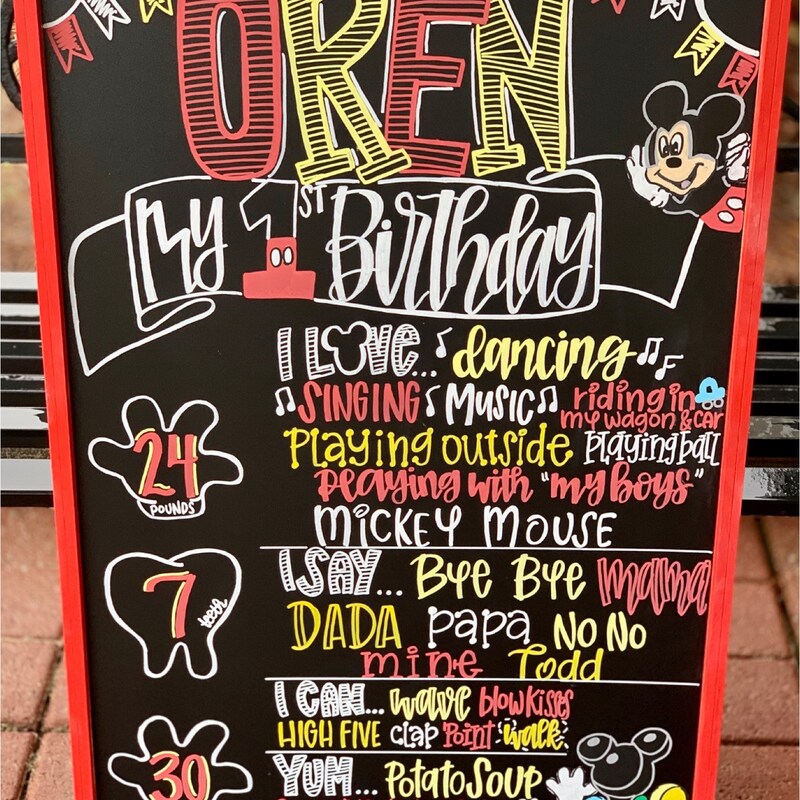 OREN
My 1ST Birthday
I LOVE... dancing
SINGING MUSIC riding in
my wagon & car
Playing outside playing ball
Playing with "my boys"
MICKEY MOUSE
24
POUNDS
I SAY... Bye Bye mama
DADA papa NO NO
mine Todd
7
teeth
I CAN... wave blow kisses
HIGH FIVE clap POINT walk
30
YUM... Potato Soup